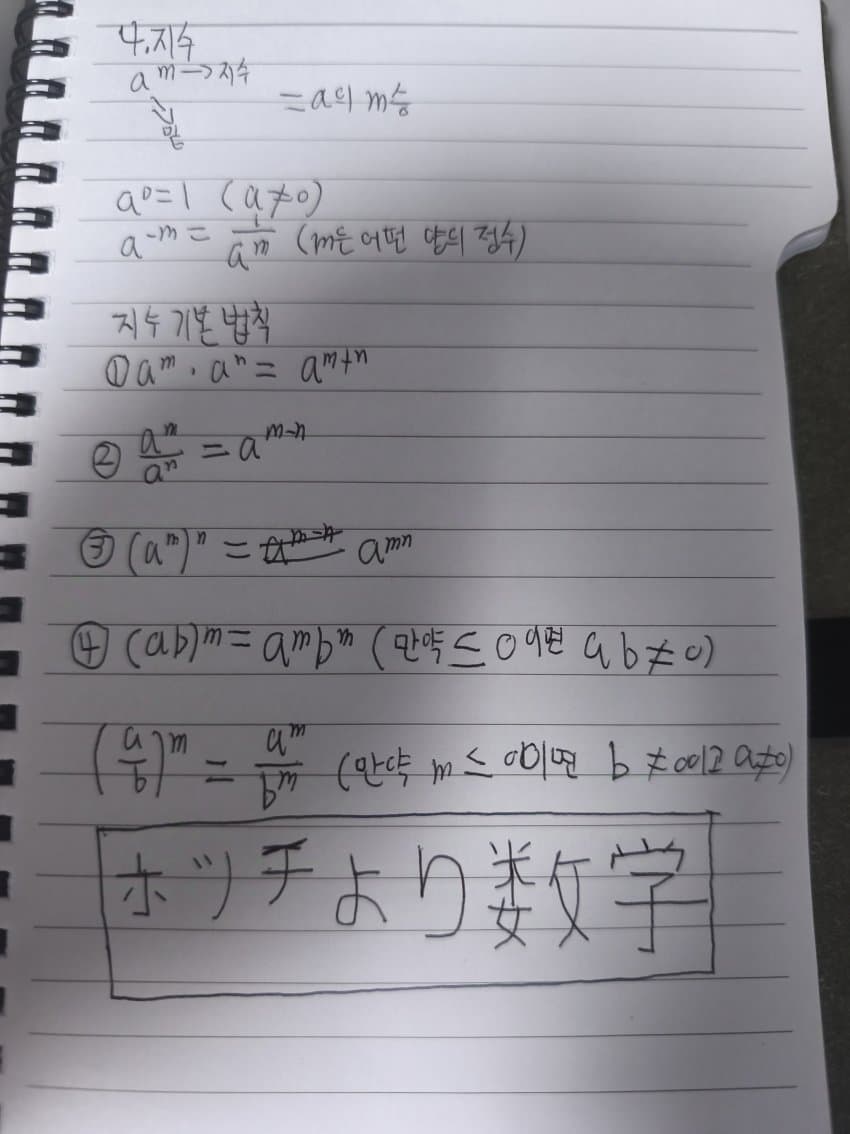 4.지수
a^m→지수
밑
=a의 m승
a^0=1 (a≠0)
a^-m = 1/a^m (m은 어떤 양의 정수)
지수 기본 법칙
① a^m · a^n = a^m+n
② a^m/a^n = a^m-n
③ (a^m)^n = a^mn
④ (ab)^m = a^m b^m (만약 ≤ 0 이면 ab≠0)
(a/b)^m = a^m/b^m (만약 m ≤ 0이면 b≠0이고 a≠0)
ホッチより数学